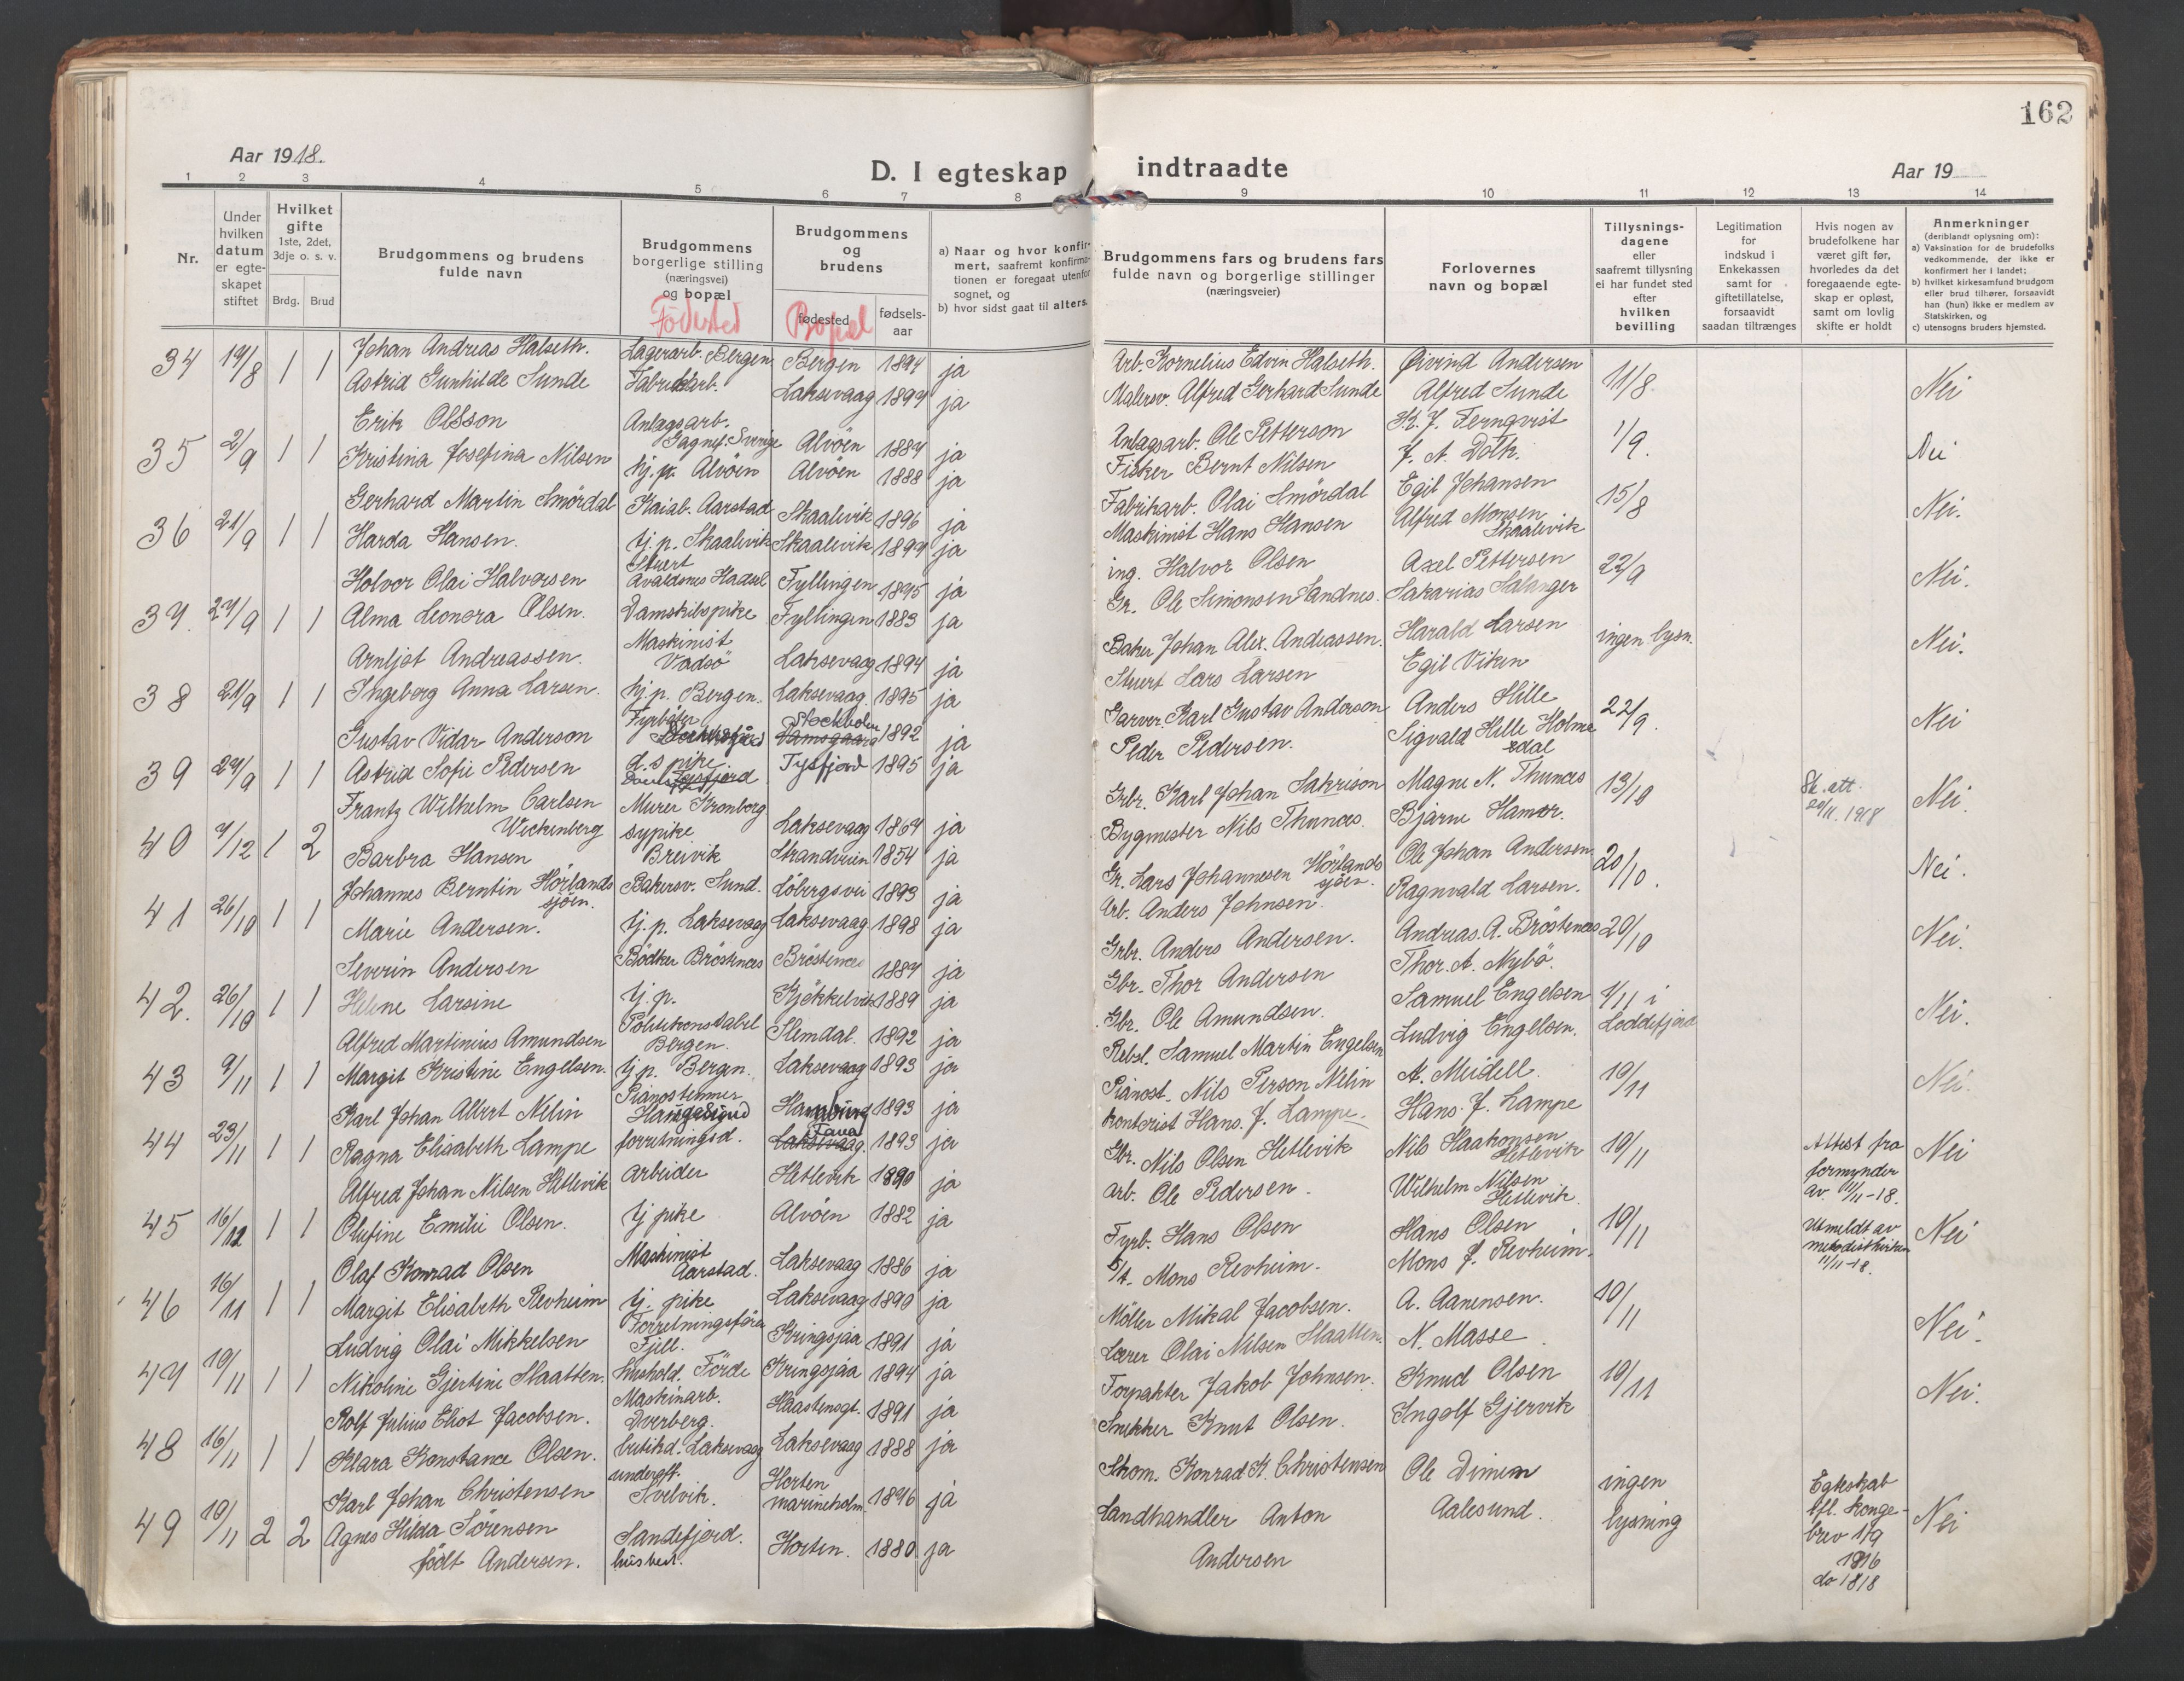 162
Aar 1918.
D. I egteskap indtraadte
Aar 19
1 2 3 4 5 6 7 8 9 10 11 12 13 14
Nr.
Under hvilken datum er egteskapet stiftet
Hvilket gifte 1ste, 2det, 3dje o. s. v.
Brdg. Brud
Brudgommens og brudens fulde navn
Brudgommens borgerlige stilling (næringsvei) og bopæl
Fødested
Brudgommens og brudens
fødested
Bopæl
fødsels-aar
a) Naar og hvor konfirmert, saafremt konfirmationen er foregaat utenfor sognet, og
b) hvor sidst gaat til alters.
Brudgommens fars og brudens fars fulde navn og borgerlige stillinger (næringsveier)
Forlovernes navn og bopæl
Tillysningsdagene eller saafremt tillysning ei har fundet sted efter hvilken bevilling
Legitimation for indskud i Enkekassen samt for giftetillatelse, forsaavidt saadan tiltrænges
Hvis nogen av brudefolkene har været gift før, hvorledes da det foregaaende egteskap er opløst, samt om lovlig skifte er holdt
Anmerkninger (deriblandt oplysning om):
a) Vaksination for de brudefolks vedkommende, der ikke er konfirmert her i landet;
b) hvilket kirkesamfund brudgom eller brud tilhører, forsaavidt han (hun) ikke er medlem av Statskirken, og
c) utensogns bruders hjemsted.
34 19/8 1 1 Johan Andreas Halseth. Lagerarb. Bergen Bergen 1894 ja Arb. Kornelius Edvin Halseth. Øivind Andersen 11/8 Nei
Astrid Gunhilde Sunde Fabrikarb. Laksevaag 1897 ja Malersv. Alfred Gerhard Sunde Alfred Sunde
35 2/9 1 1 Erik Olsson Anlagsarb. Gagnef. Sverige Alvøen 1887 ja Anlagsarb. Ole Petterson K. J. Fernqvist 1/9. Nei
Kristina Josefina Nilsen hj. p. Alvøen Alvøen 1888 ja Fisker Bernt Nilsen J. A. Dolk.
36 21/9 1 1 Gerhard Martin Smørdal Kaiab. Aarstad Skaalevik 1896 ja Fabrikarb. Olai Smørdal Egil Johansen 15/8 Nei.
Harda Hansen. tj. p. Skaalevik Skaalevik 1897 ja Maskinist Hans Hansen Alfred Monsen Skaalevik
37. 27/9 1 1 Holvor Olai Halvorsen Stuert Avaldsnes Hadsel Fyllingen 1895 ja ing. Halvor Olsen Axel Pettersen 22/9 Nei.
Alma Leonora Olsen. Damskibspike Fyllingen 1883 ja Gr. Ole Simonsen Sandnes. Sakarias Salanger
38 21/9 1 1 Arnljot Andreassen. Maskinist Vadsø Laksevaag 1894 ja Baker Johan Alex. Andreassen. Harald Larsen ingen lysn. Nei.
Ingeborg Anna Larsen. hj. p. Bergen. Laksevaag. 1895 ja Stuert Lars Larsen Egil Viken
39 27/9 1 1 Gustav Vidar Anderson Fyrbøter Stockholm 1892 ja Garver. Karl Gustav Anderson Anders Hille 22/9. Nei
Astrid Sofie Pedersen d.s pike. Tysfjord 1895 ja Peder Pedersen. Sigvald Hille Holmedal
40 7/12 1 2 Frantz Wilhelm Carlsen Wickenberg Murer Kronborg Laksevaag 1864 ja Grbr. Karl Johan Sakrison Magne N. Thunæs 13/10 Sk. att. 20/11. 1918 Nei.
Barbra Hansen sypike Breivik Strandveien 1854 ja Bygmester Nils Thunæs. Bjarne Hamer.
41 26/10 1 1 Johannes Berntin Hørlandsjøen. Bakersv. Sund. Løbergsvei 1893 ja Gr. Lars Johannesen Hørlandsjøen. Ole Johan Andersen 20/10. Nei.
Marie Andersen. tj. p. Laksevaag Laksevaag 1898 ja Arb. Anders Johnsen. Ragnvald Larsen.
42. 26/10 1 1 Severin Andersen Bødker Brøstenæs Brøstenæs 1887 ja Grbr. Anders Andersen. Andreas. A. Brøstenæs 20/10 Nei.
Helene Larsine tj. p. Kjøkkelvik 1889 ja Gbr. Thor Andersen Thor. A. Nybø.
43 9/11 1 1 Alfred Martinius Amundsen Politikonstabel Bergen. Slemdal. 1892 ja Gbr. Ole Amundsen. Samuel Engelsen 1/11 i Loddefjord Nei.
Margit Kristine Engelsen. tj p. Bergen. Laksevaag 1893 ja Rebsl. Samuel Martin Engelsen Ludvig Engelsen.
44 23/11 1 1 Karl Johan Albert Nelin Pianostemmer Haugesund Hamburg 1893 ja Pianost. Nils Person Nelin A. Meidell. 10/11 Nei.
Ragna Elisabeth Lampe forretningsd. Laksevaag. Fana 1893 ja Kontorist Hans. J. Lampe. Hans. J. Lampe
45 16/12 1 1 Alfred Johan Nilsen Hetlevik arbeider Hetlevik 1890 ja Gbr. Nils Olsen Hetlevik Nils Haakonsen Hetlevik 10/11 Attest fra formynder av 11/11-18. Nei
Olufine Emilie Olsen. tj pike Alvøen 1882 ja arb. Ole Pedersen. Wilhelm Nilsen Hetlevik.
46 16/11 1 1 Olaf Konrad Olsen Maskinist Aarstad. Laksevaag 1886 ja Fyrb. Hans Olsen Hans Olsen 10/11 Utmeldt av metodistkirken 11/11-18. Nei
Margit Elisabeth Revheim tj. pike Laksevaag 1890 ja Mons Revheim. Mons J. Revheim.
47 10/11 1 1 Ludvig Olai Mikkelsen Forretningsfører Fjell. Kringsjaa 1891 ja Møller Mikal Jacobsen. A. Aanensen. 10/11 Nei.
Nikoline Gjertine Slaatten. hushold. Førde Kringsjaa 1894 ja Lærer Olai Nilsen Slaatten. N. Masse
48 16/11 1 1 Rolf Julius Eliot Jacobsen. Maskinarb. Dverberg. Haastensgt. 1891 ja Forpakter Jakob Johnsen. Knud Olsen 10/11 Nei.
Klara Konstance Olsen. butikd. Laksevaag Laksevaag 1888 ja Snekker Knut Olsen. Ingolf Gjervik
49 10/11 2 2 Karl Johan Christensen underoff. Svelvik. Horten marineholm. 1876 ja Skom. Konrad K. Christensen Ole Dimen ingen lysning Egteskab Nei
Agnes Hilda Sørensen født Andersen. Sandefjord. husbest. Horten. 1880 ja Landhandler Anton Andersen Aalesund. tfl. Kongebrev 1/9 1916 do 1818